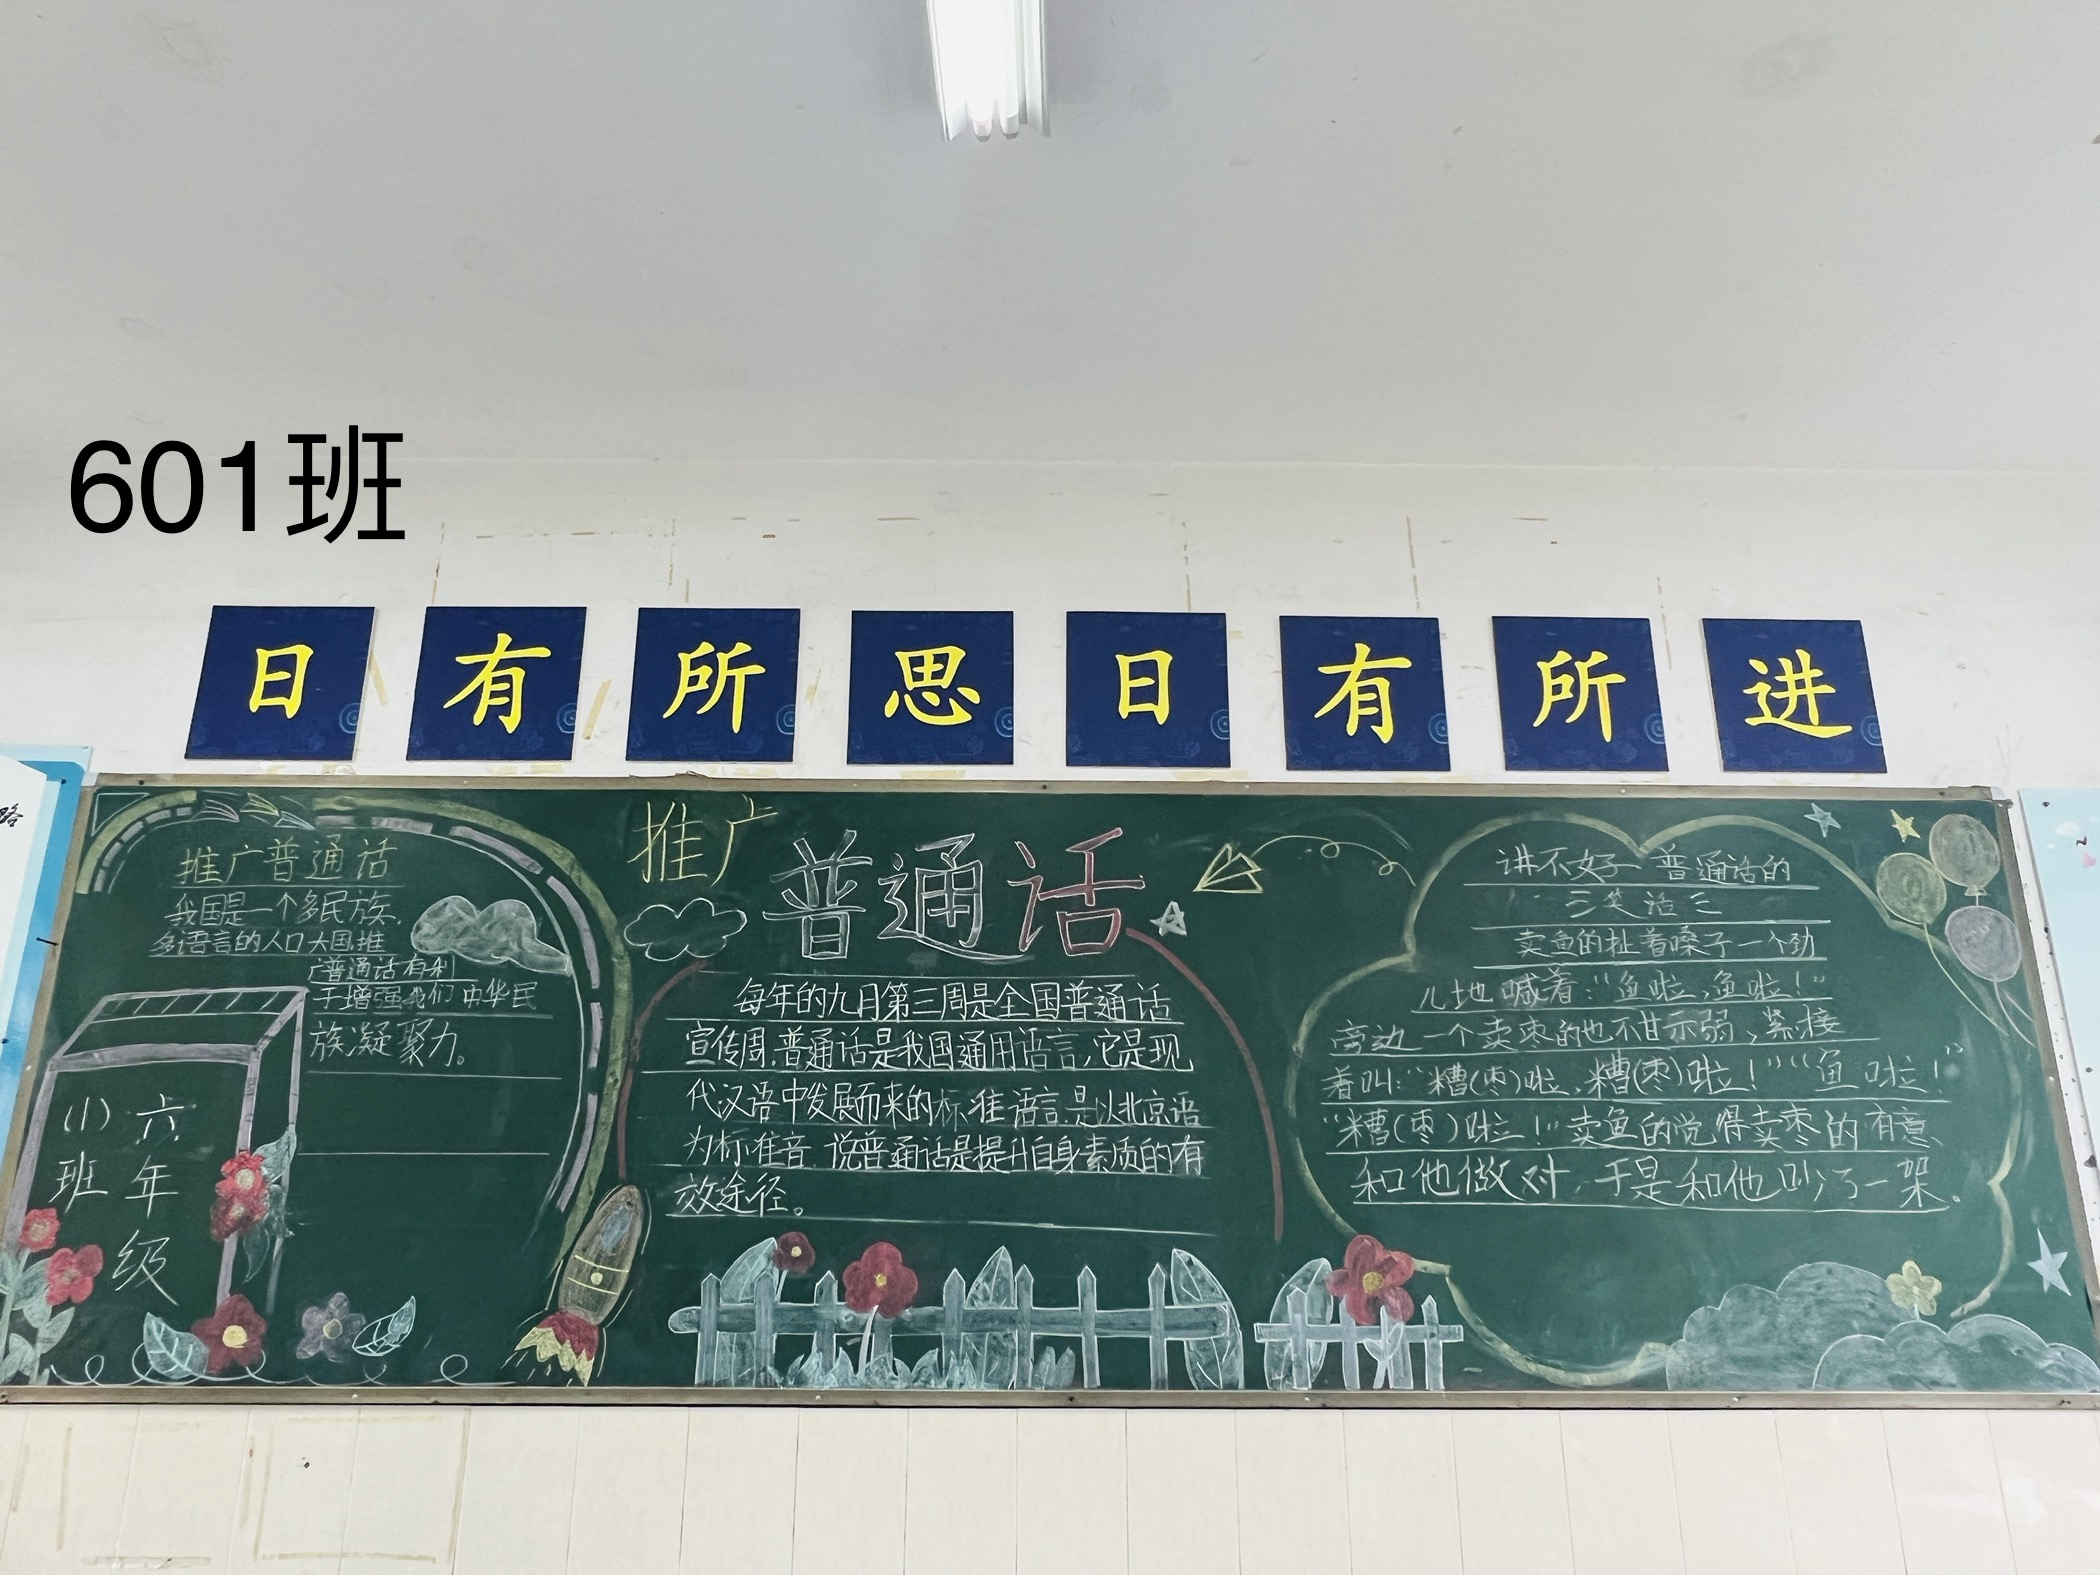 601班
日有所思日有所进
推广普通话
我国是一个多民族,
多语言的人口大国,推
广普通话有利
于增强我们中华民
族凝聚力。
六年级
(1)班
推广
普通话
每年的九月第三周是全国普通话
宣传周.普通话是我国通用语言,它是现
代汉语中发展而来的标准语言.是以北京语
为标准音.说普通话是提升自身素质的有
效途径。
讲不好普通话的
三笑话三
卖鱼的扯着嗓子一个劲
儿地喊着:“鱼啦,鱼啦!”
旁边一个卖枣的也不甘示弱,紧接
着叫:“糟(枣)啦,糟(枣)啦!”“鱼啦!”
“糟(枣)啦!”卖鱼的觉得卖枣的有意
和他做对,于是和他吵了一架。